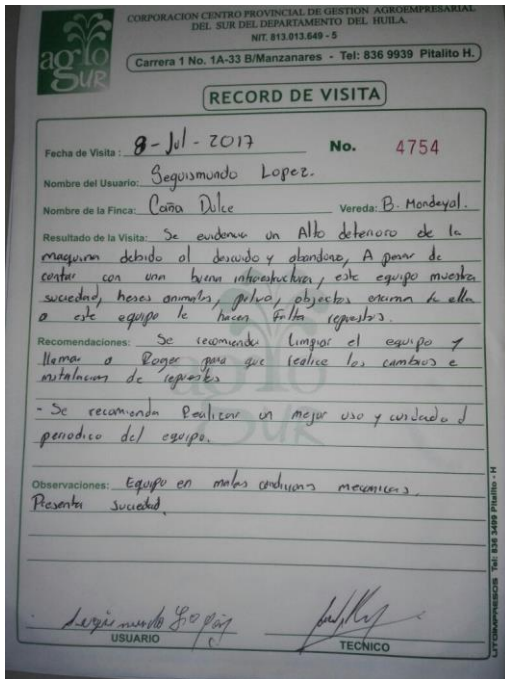 agro
SUR
CORPORACION CENTRO PROVINCIAL DE GESTION AGROEMPRESARIAL
DEL SUR DEL DEPARTAMENTO DEL HUILA.
NIT. 813.013.649 - 5
Carrera 1 No. 1A-33 B/Manzanares - Tel: 836 9939 Pitalito H.
RECORD DE VISITA
Fecha de Visita : 8 - Jul - 2017 No. 4754
Nombre del Usuario: Seguismundo Lopez.
Nombre de la Finca: Caña Dulce Vereda: B. Mondeyal.
Resultado de la Visita: Se evidencia un Alto deterioro de la
maquina debido al descuido y abandono, A pesar de
contar con una buena infraestructura, este equipo muestra
suciedad, heses animales, polvo, objectos encima de ella
a este equipo le hacen falta repuestos.
Recomendaciones: Se recomienda Limpiar el equipo y
llamar a Roger para que realice los cambios e
instalacion de repuestos
- Se recomienda Realizar un mejor uso y cuidado
periodico del equipo.
Observaciones: Equipo en malas condiciones mecanicas.
Presenta suciedad.
Seguismundo Lopez
USUARIO TECNICO
LITOIMPRESOS Tel: 836 3499 Pitalito - H